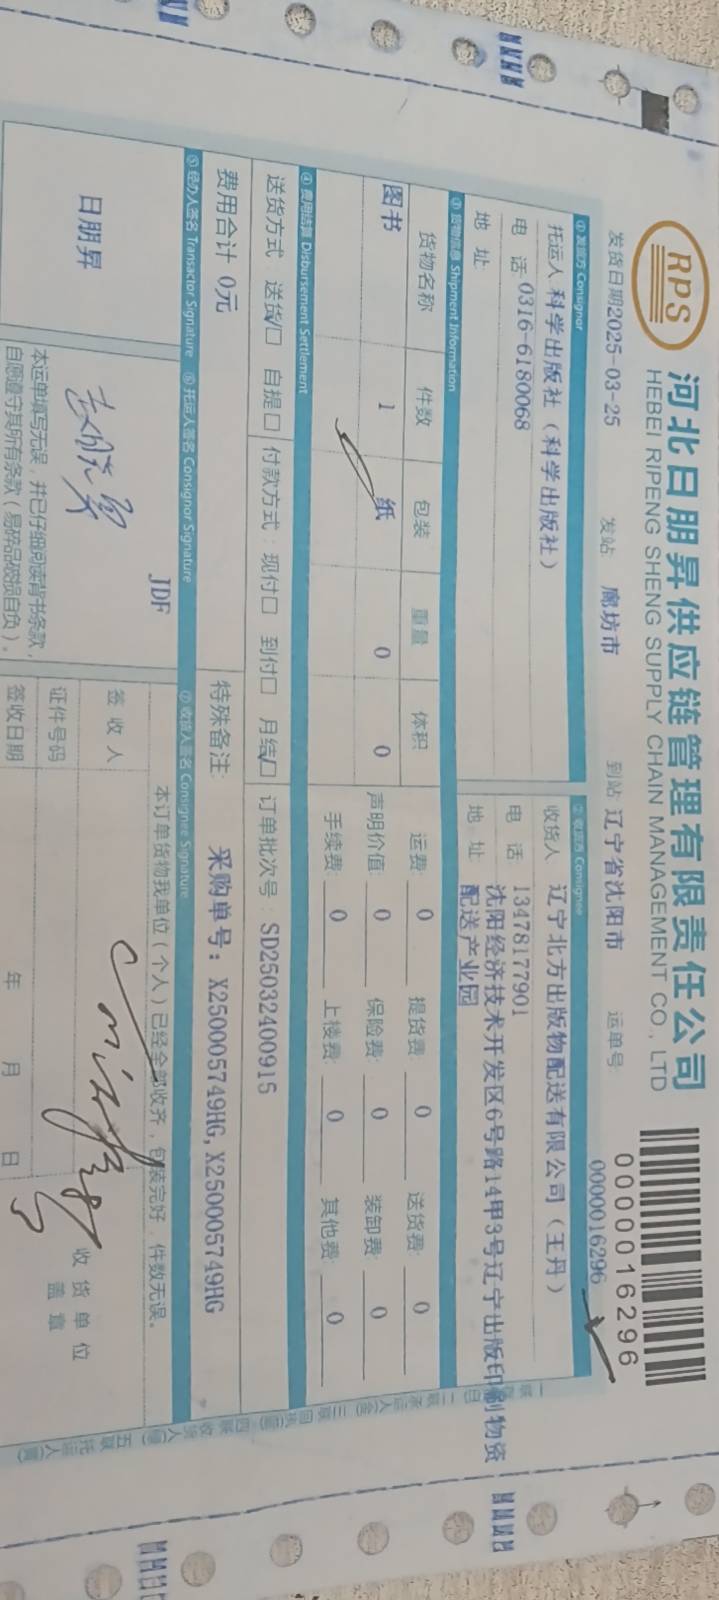 RPS
河北日朋昇供应链管理有限责任公司
HEBEI RIPENG SHENG SUPPLY CHAIN MANAGEMENT CO., LTD
0000016296
发货日期2025-03-25 发站 廊坊市 到站 辽宁省沈阳市 运单号: 0000016296
① 发货方 Consignor ② 收货方 Consignee
托运人 科学出版社（科学出版社） 收货人 辽宁北方出版物配送有限公司（王丹）
电 话 0316-6180068 电 话 13478177901
地 址 地 址 沈阳经济技术开发区6号路14甲3号辽宁出版印刷物资
配送产业园
③ 货物信息 Shipment Information
货物名称 件数 包装 重量 体积 运费: 0 提货费 0 送货费: 0
图书 1 纸 0 0 声明价值: 0 保险费: 0 装卸费: 0
手续费: 0 上楼费: 0 其他费: 0
④ 费用结算 Disbursement Settlement
送货方式: 送货 自提 付款方式: 现付 到付 月结 订单批次号: SD25032400915
费用合计 0元 特殊备注: 采购单号: X250005749HG,X250005749HG
⑤ 经办人签名 Transactor Signature ⑥ 托运人签名 Consignor Signature ⑦ 收货人签名 Consignee Signature
日朋昇
JDF
本订单货物我单位（个人）已经全部收齐，包装完好，件数无误。
签 收 人
收 货 单 位
盖 章
证件号码
本运单填写无误，并已仔细阅读背书条款，
自愿遵守其所有条款（易碎品破损自负）。
签收日期 年 月 日